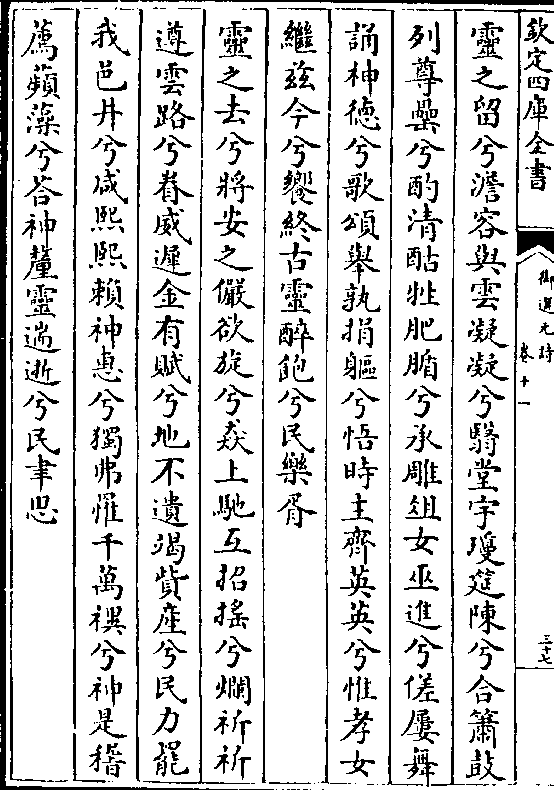 欽定四庫全書
御選元詩
卷十一
三十七
靈之留兮澹容與雲凝凝兮翳堂宇瓊筵陳兮合簫鼓
列尊罍兮酌清酤牲肥腯兮承雕俎女巫進兮傞屢舞
誦神德兮歌頌舉孰捐軀兮悟時主齊英英兮惟孝女
繼兹今兮饗終古靈醉飽兮民樂胥
靈之去兮將安之儼欲旋兮焱上馳互招搖兮爓祈祈
遵雲路兮眷威遲金有賦兮地不遺竭貲產兮民力罷
我邑井兮咸熙熙賴神惠兮獨弗罹千萬禩兮神是稽
薦蘋藻兮荅神釐靈遄逝兮民聿思